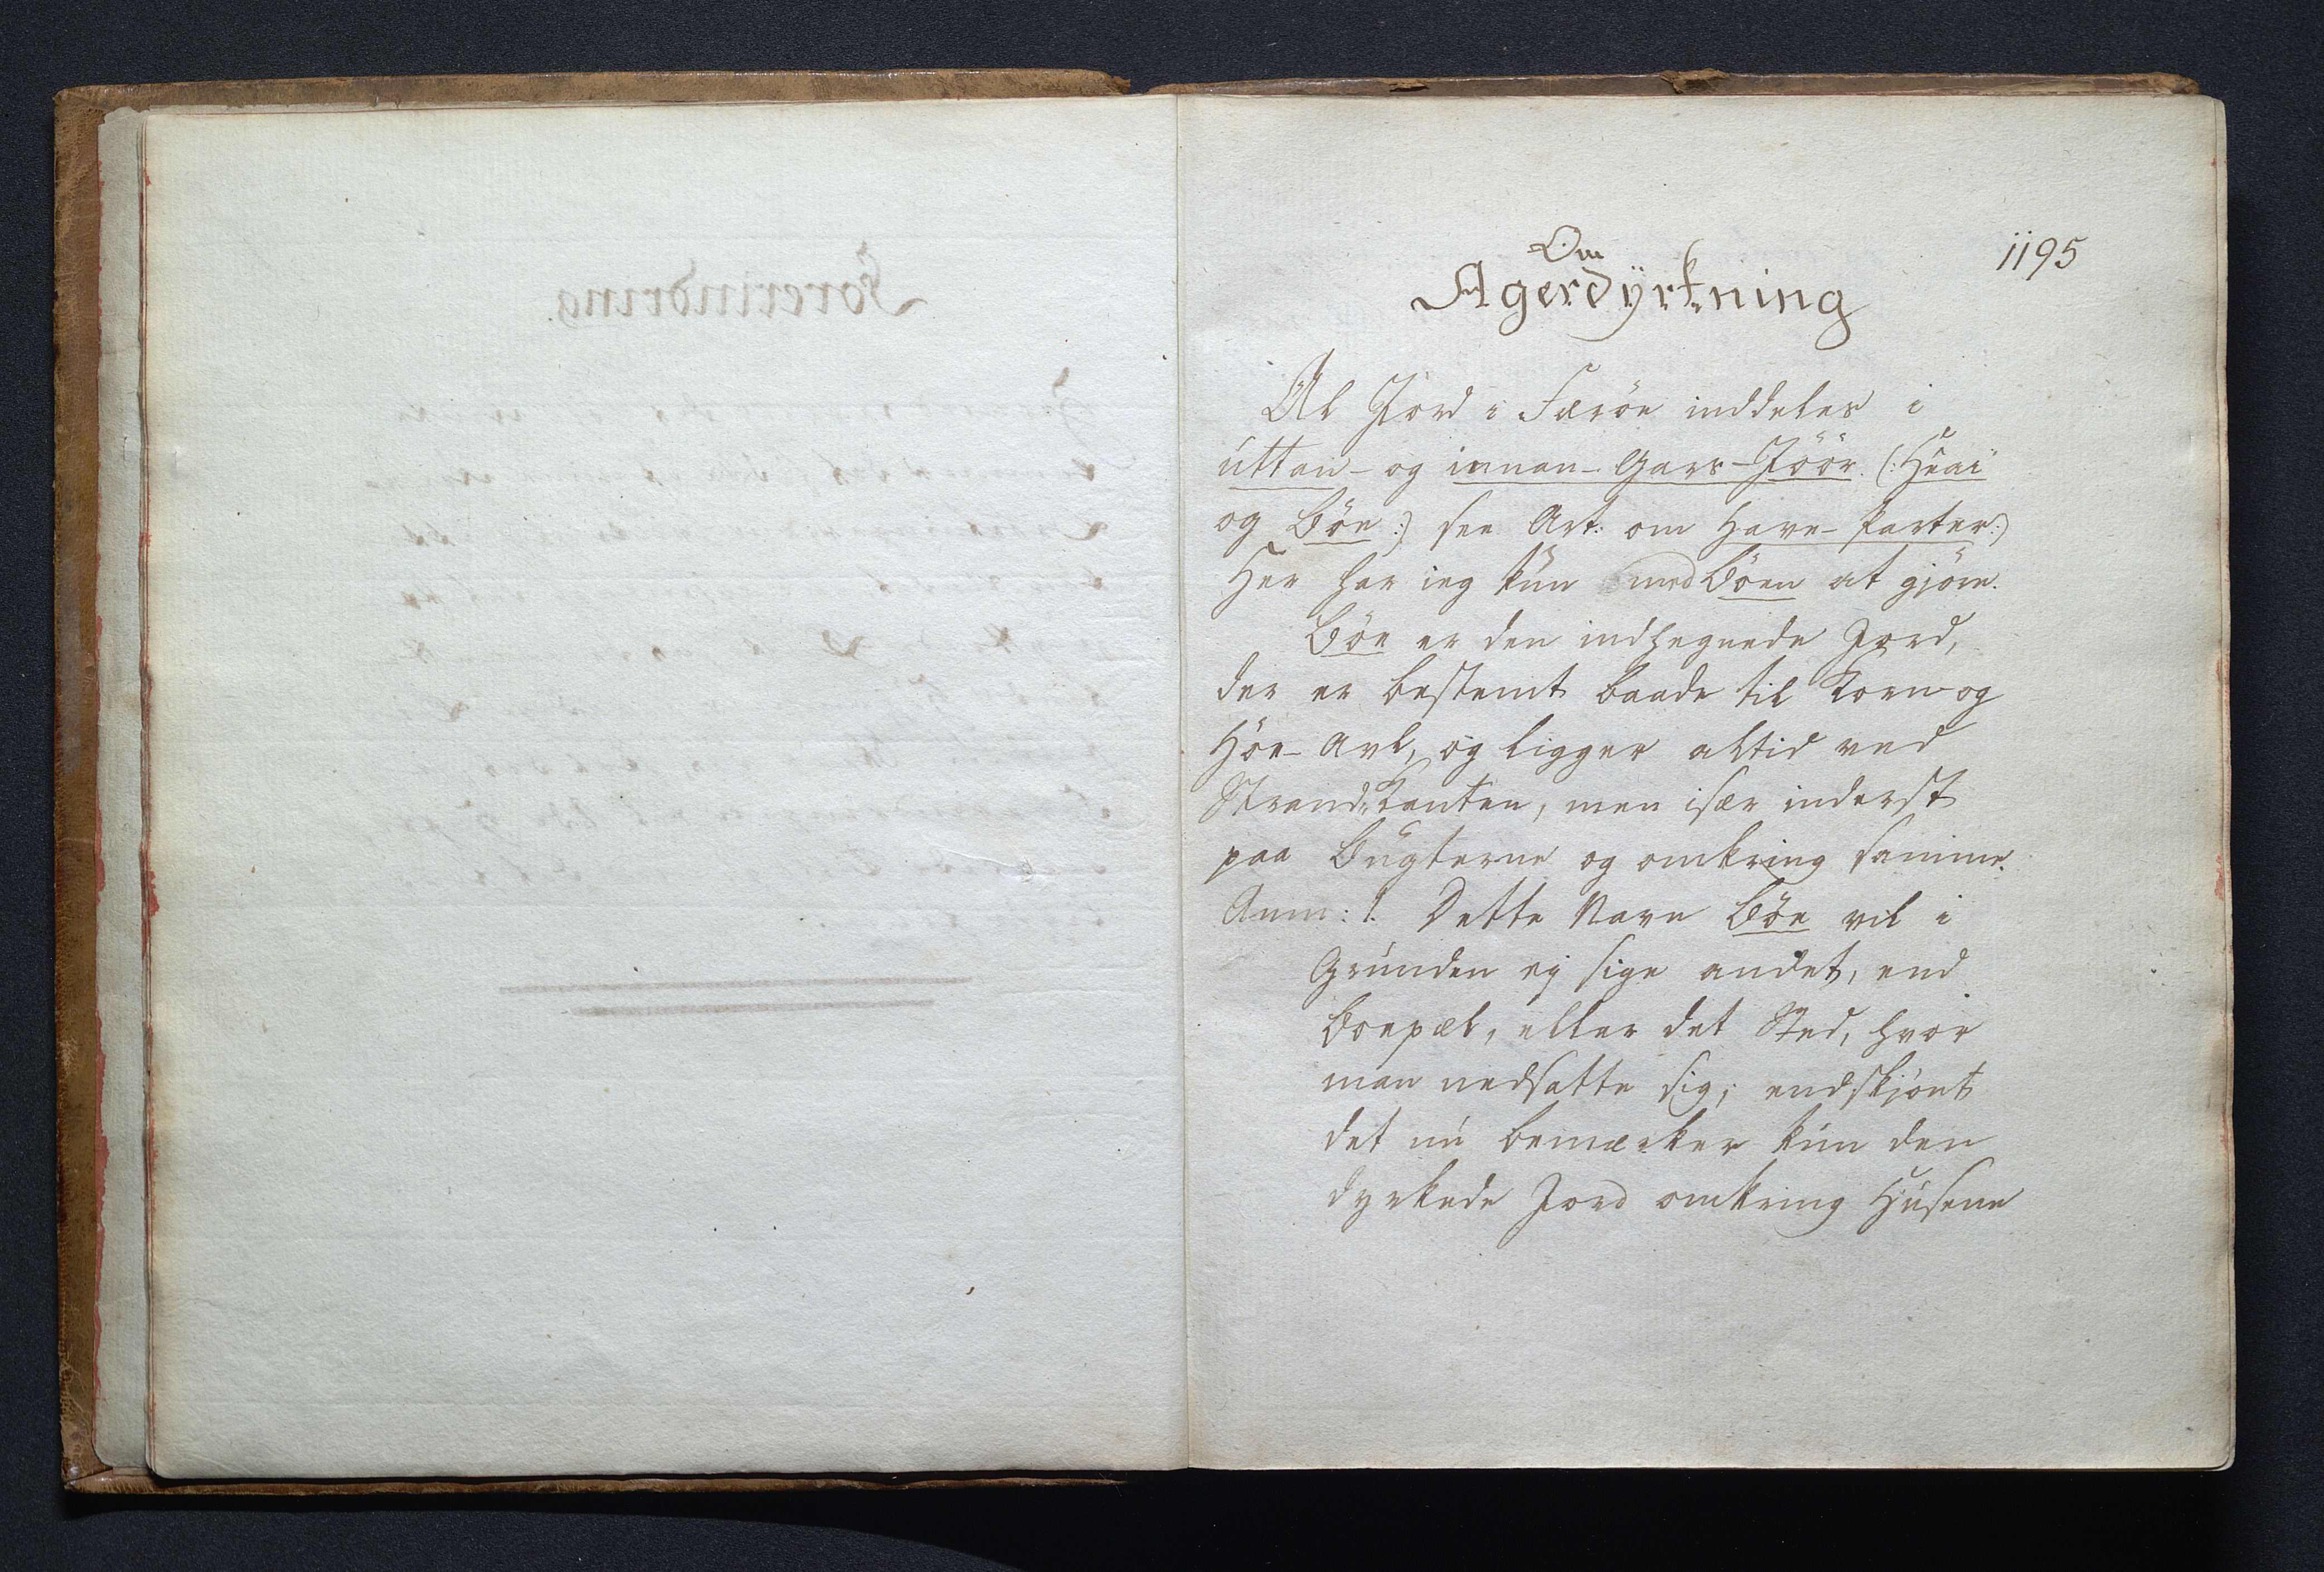 Forerindring
1195
Om
Agerdÿrkning
Al Jord i Færöe inddeles i
uttan- og innan-Gars-Jöör. (:Heai
og Böe:) see Art: om Have-Parter:)
Her har ieg kun med Böen at gjöre.
Böe er den indhegnede Jord,
der er bestemt baade til Korn- og
Höe-Avl, og ligger altid ved
Strand-Kanten, men især inderst
paa Bugterne og omkring samme.
Anm: 1. Dette Navn Böe vil i
Grunden ej sige andet, end
Boepæl, eller det Sted, hvor
man nedsatte sig; endskjönt
det nu bemærker kun den
dyrkede Jord omkring Husene